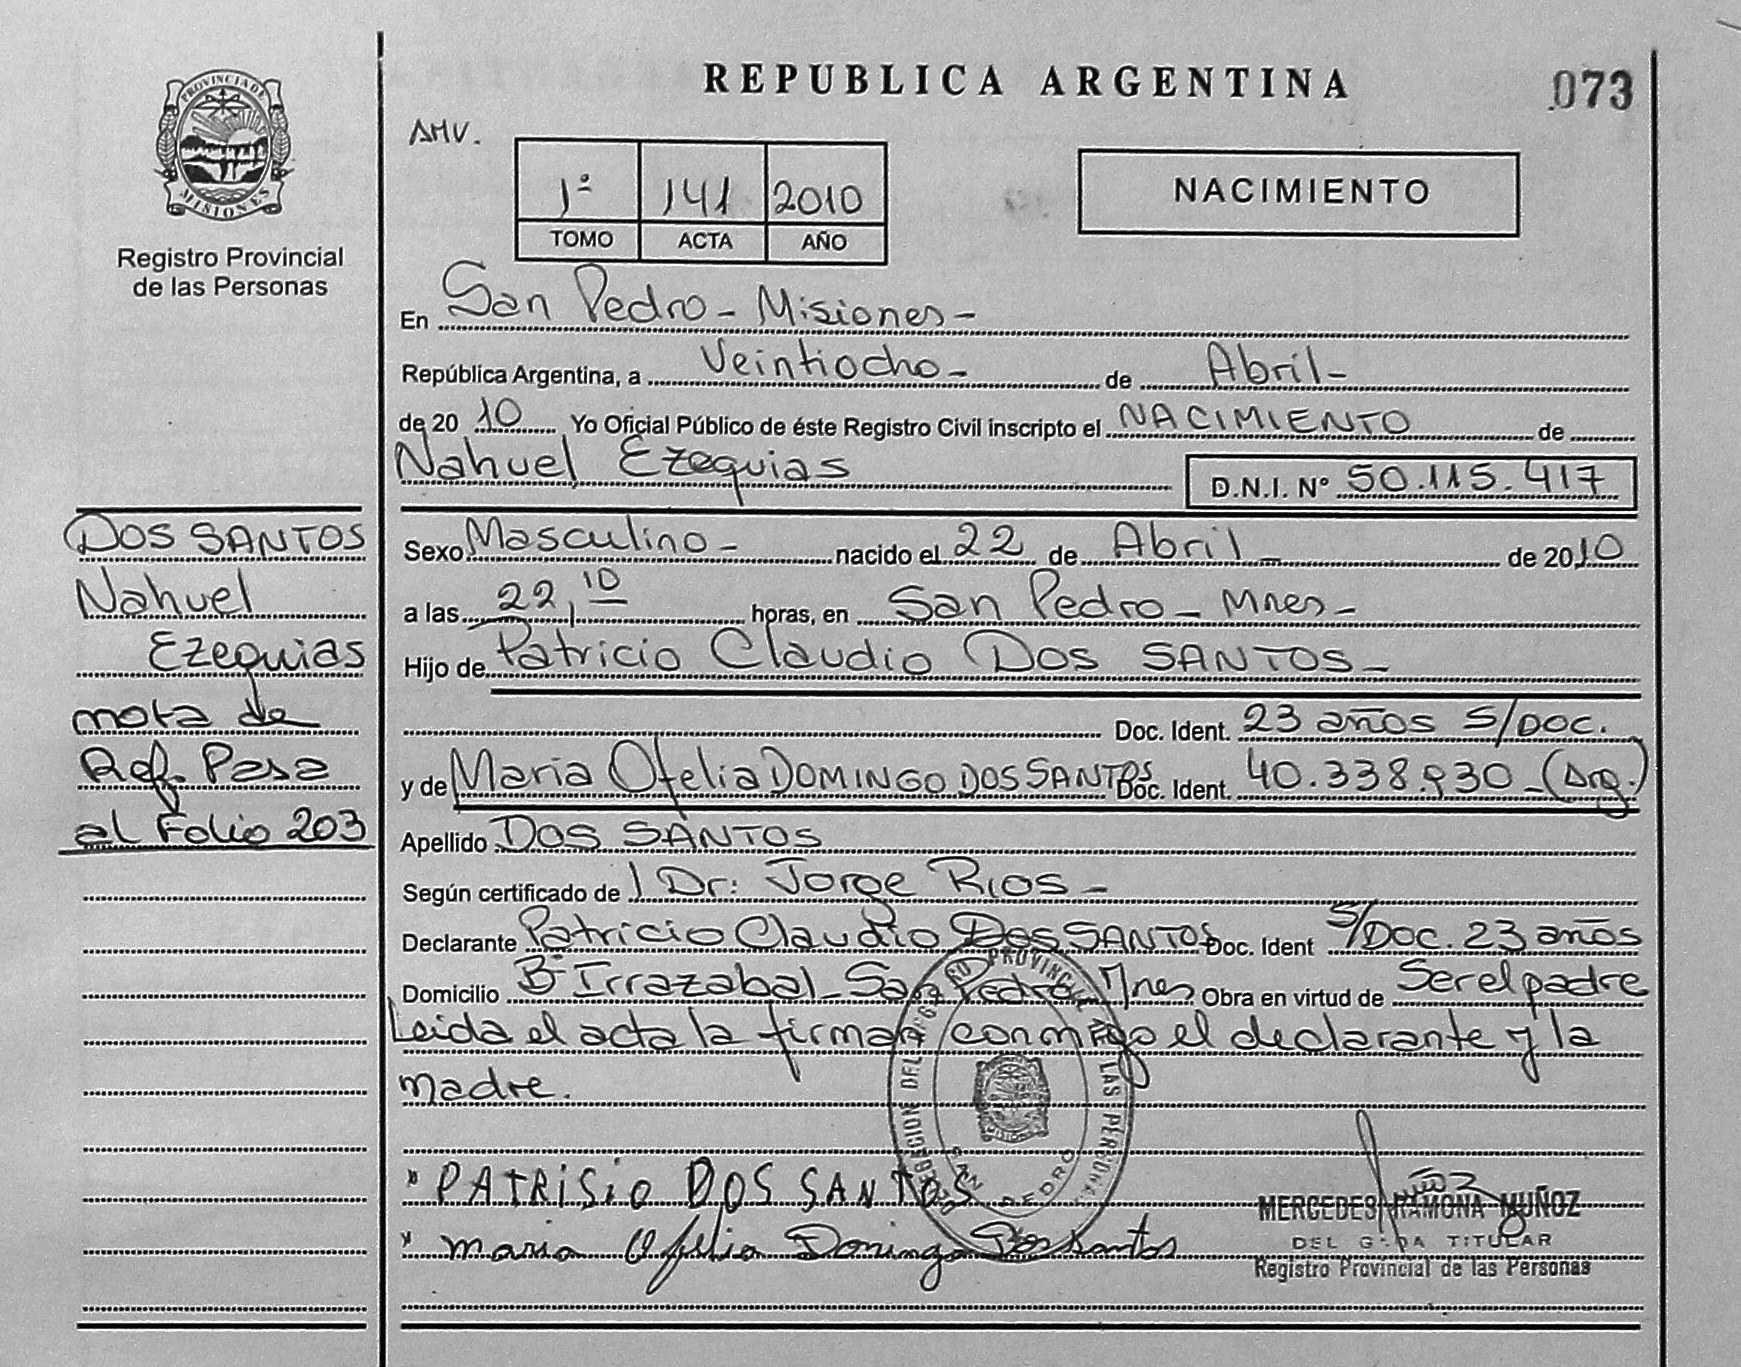 REPUBLICA ARGENTINA
073
PROVINCIA DE
MISIONES
Registro Provincial
de las Personas
AMV.
1º 141 2010
TOMO ACTA AÑO
NACIMIENTO
En San Pedro - Misiones -
República Argentina, a Veintiocho - de Abril -
de 2010 Yo Oficial Público de éste Registro Civil inscripto el NACIMIENTO de
Nahuel Ezequias D.N.I. Nº 50.115.417
DOS SANTOS
Nahuel
Ezequias
nota de
Ref. Pasa
al Folio 203
Sexo Masculino - nacido el 22 de Abril - de 2010
a las 22,10 horas, en San Pedro - Mnes -
Hijo de Patricio Claudio DOS SANTOS -
Doc. Ident. 23 años S/DOC.
y de Maria Ofelia DOMINGO DOS SANTOS Doc. Ident. 40.338.930 - (Arg.)
Apellido DOS SANTOS
Según certificado de l Dr: Jorge Rios -
Declarante Patricio Claudio DOS SANTOS Doc. Ident S/DOC. 23 años
Domicilio Bº Irrazabal - San Pedro Mnes Obra en virtud de Ser el padre
Leida el acta la firman conmigo el declarante y la
madre.
DELEGACION DEL REGISTRO PROVINCIAL DE LAS PERSONAS
SAN PEDRO
MISIONES
" PATRISIO DOS SANTOS
" maria Ofelia Domingo Dos Santos
MERCEDES RAMONA MUÑOZ
DEL G DA TITULAR
Registro Provincial de las Personas